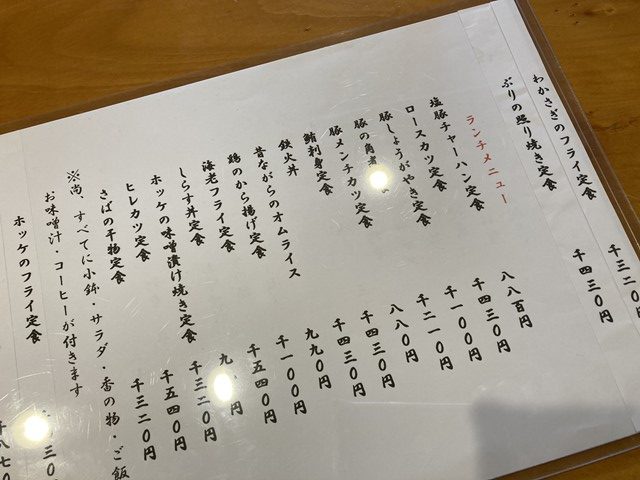 わかさぎのフライ定食 千三二〇円
ぶりの照り焼き定食 千四三〇円
ランチメニュー
塩豚チャーハン定食 八八百円
ロースカツ定食 千四三〇円
豚しょうがやき定食 千一〇〇円
豚の角煮 千二一〇円
豚メンチカツ定食 八八〇円
鮪刺身定食 千四三〇円
鉄火丼 千四三〇円
昔ながらのオムライス 九九〇円
鶏のから揚げ定食 千一〇〇円
海老フライ定食 千五四〇円
しらす丼定食 九 〇円
ホッケの味噌漬け焼き定食 千三二〇円
ヒレカツ定食 千五四〇円
さばの干物定食 千三二〇円
※尚、すべてに小鉢・サラダ・香の物・ご飯
お味噌汁・コーヒーが付きます
ホッケのフライ定食 三〇円
八七〇